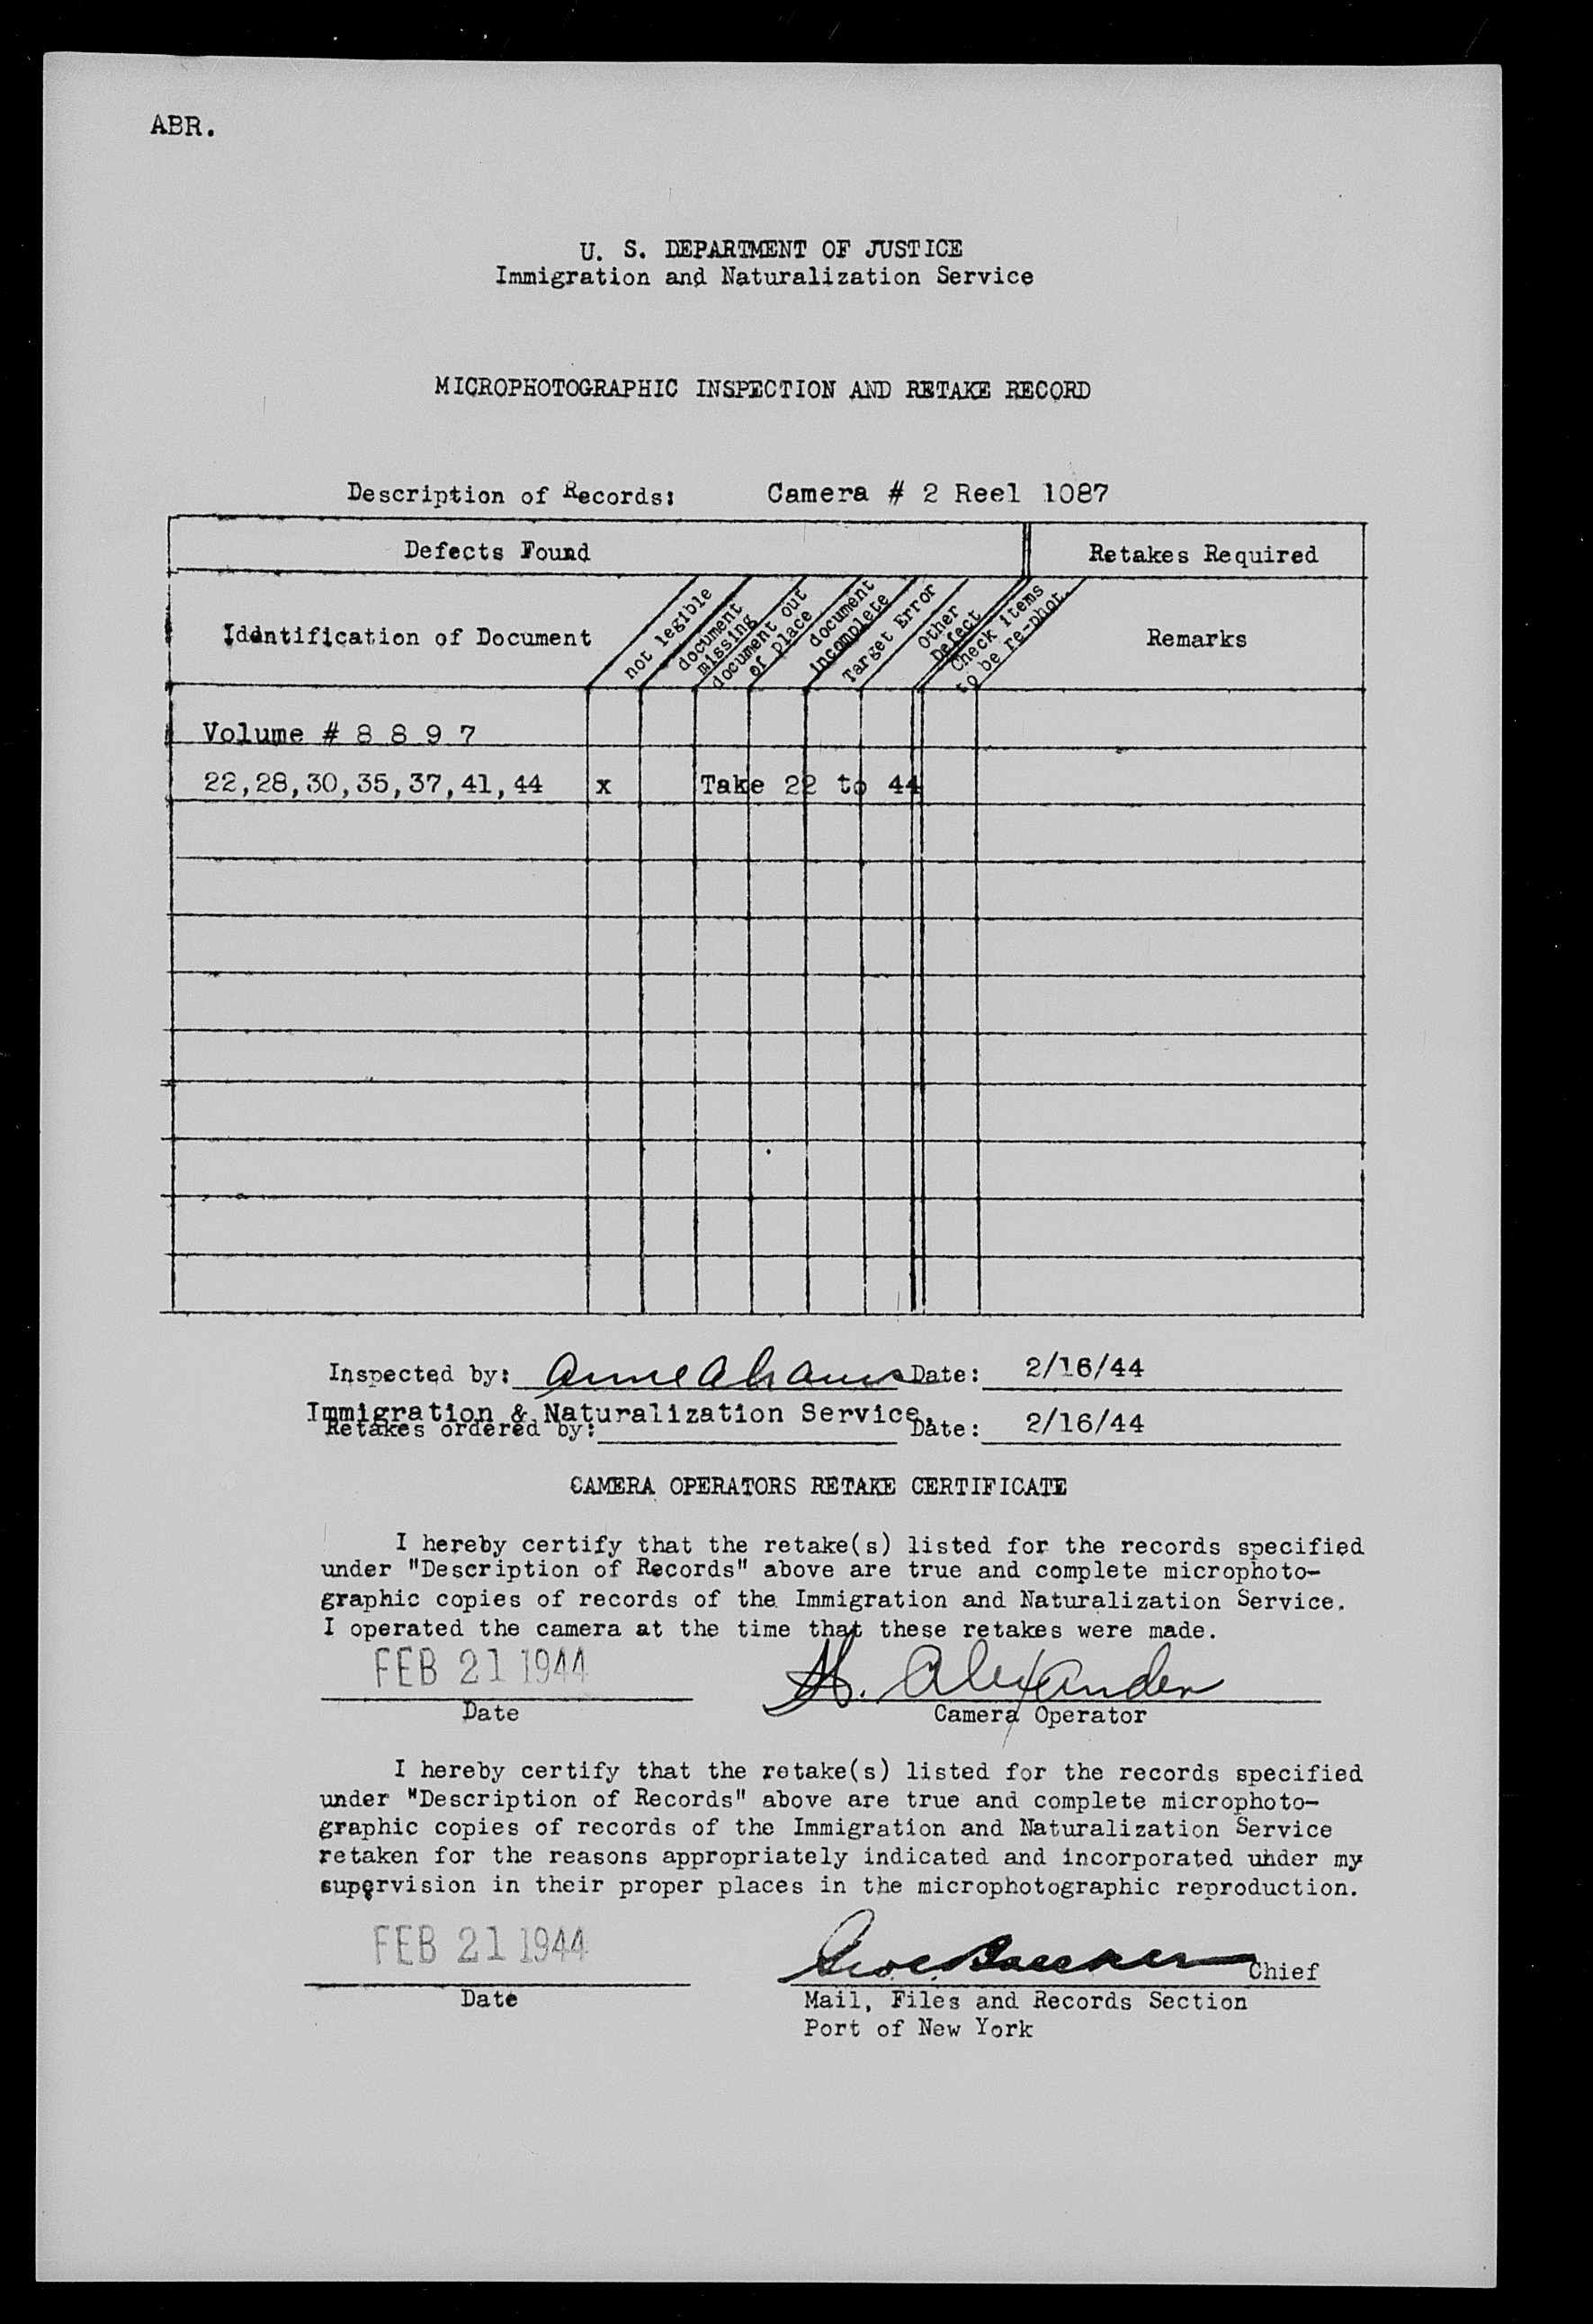 ABR.
U. S. DEPARTMENT OF JUSTICE
Immigration and Naturalization Service
MICROPHOTOGRAPHIC INSPECTION AND RETAKE RECORD
Description of Records: Camera # 2 Reel 1087
Defects Found Retakes Required
Iddntification of Document
not legible
document
missing
document out
of place
document
incomplete
Target Error
Other
Defect
Check items
to be re-phot.
Remarks
Volume # 8 8 9 7
22,28,30,35,37,41,44 x Take 22 to 44
Inspected by: Anne Abrams Date: 2/16/44
Immigration & Naturalization Service.
Retakes ordered by: Date: 2/16/44
CAMERA OPERATORS RETAKE CERTIFICATE
I hereby certify that the retake(s) listed for the records specified
under "Description of Records" above are true and complete microphoto-
graphic copies of records of the Immigration and Naturalization Service.
I operated the camera at the time that these retakes were made.
FEB 21 1944 H. Alexander
Date Camera Operator
I hereby certify that the retake(s) listed for the records specified
under "Description of Records" above are true and complete microphoto-
graphic copies of records of the Immigration and Naturalization Service
retaken for the reasons appropriately indicated and incorporated under my
supervision in their proper places in the microphotographic reproduction.
FEB 21 1944 Chief
Date Mail, Files and Records Section
Port of New York